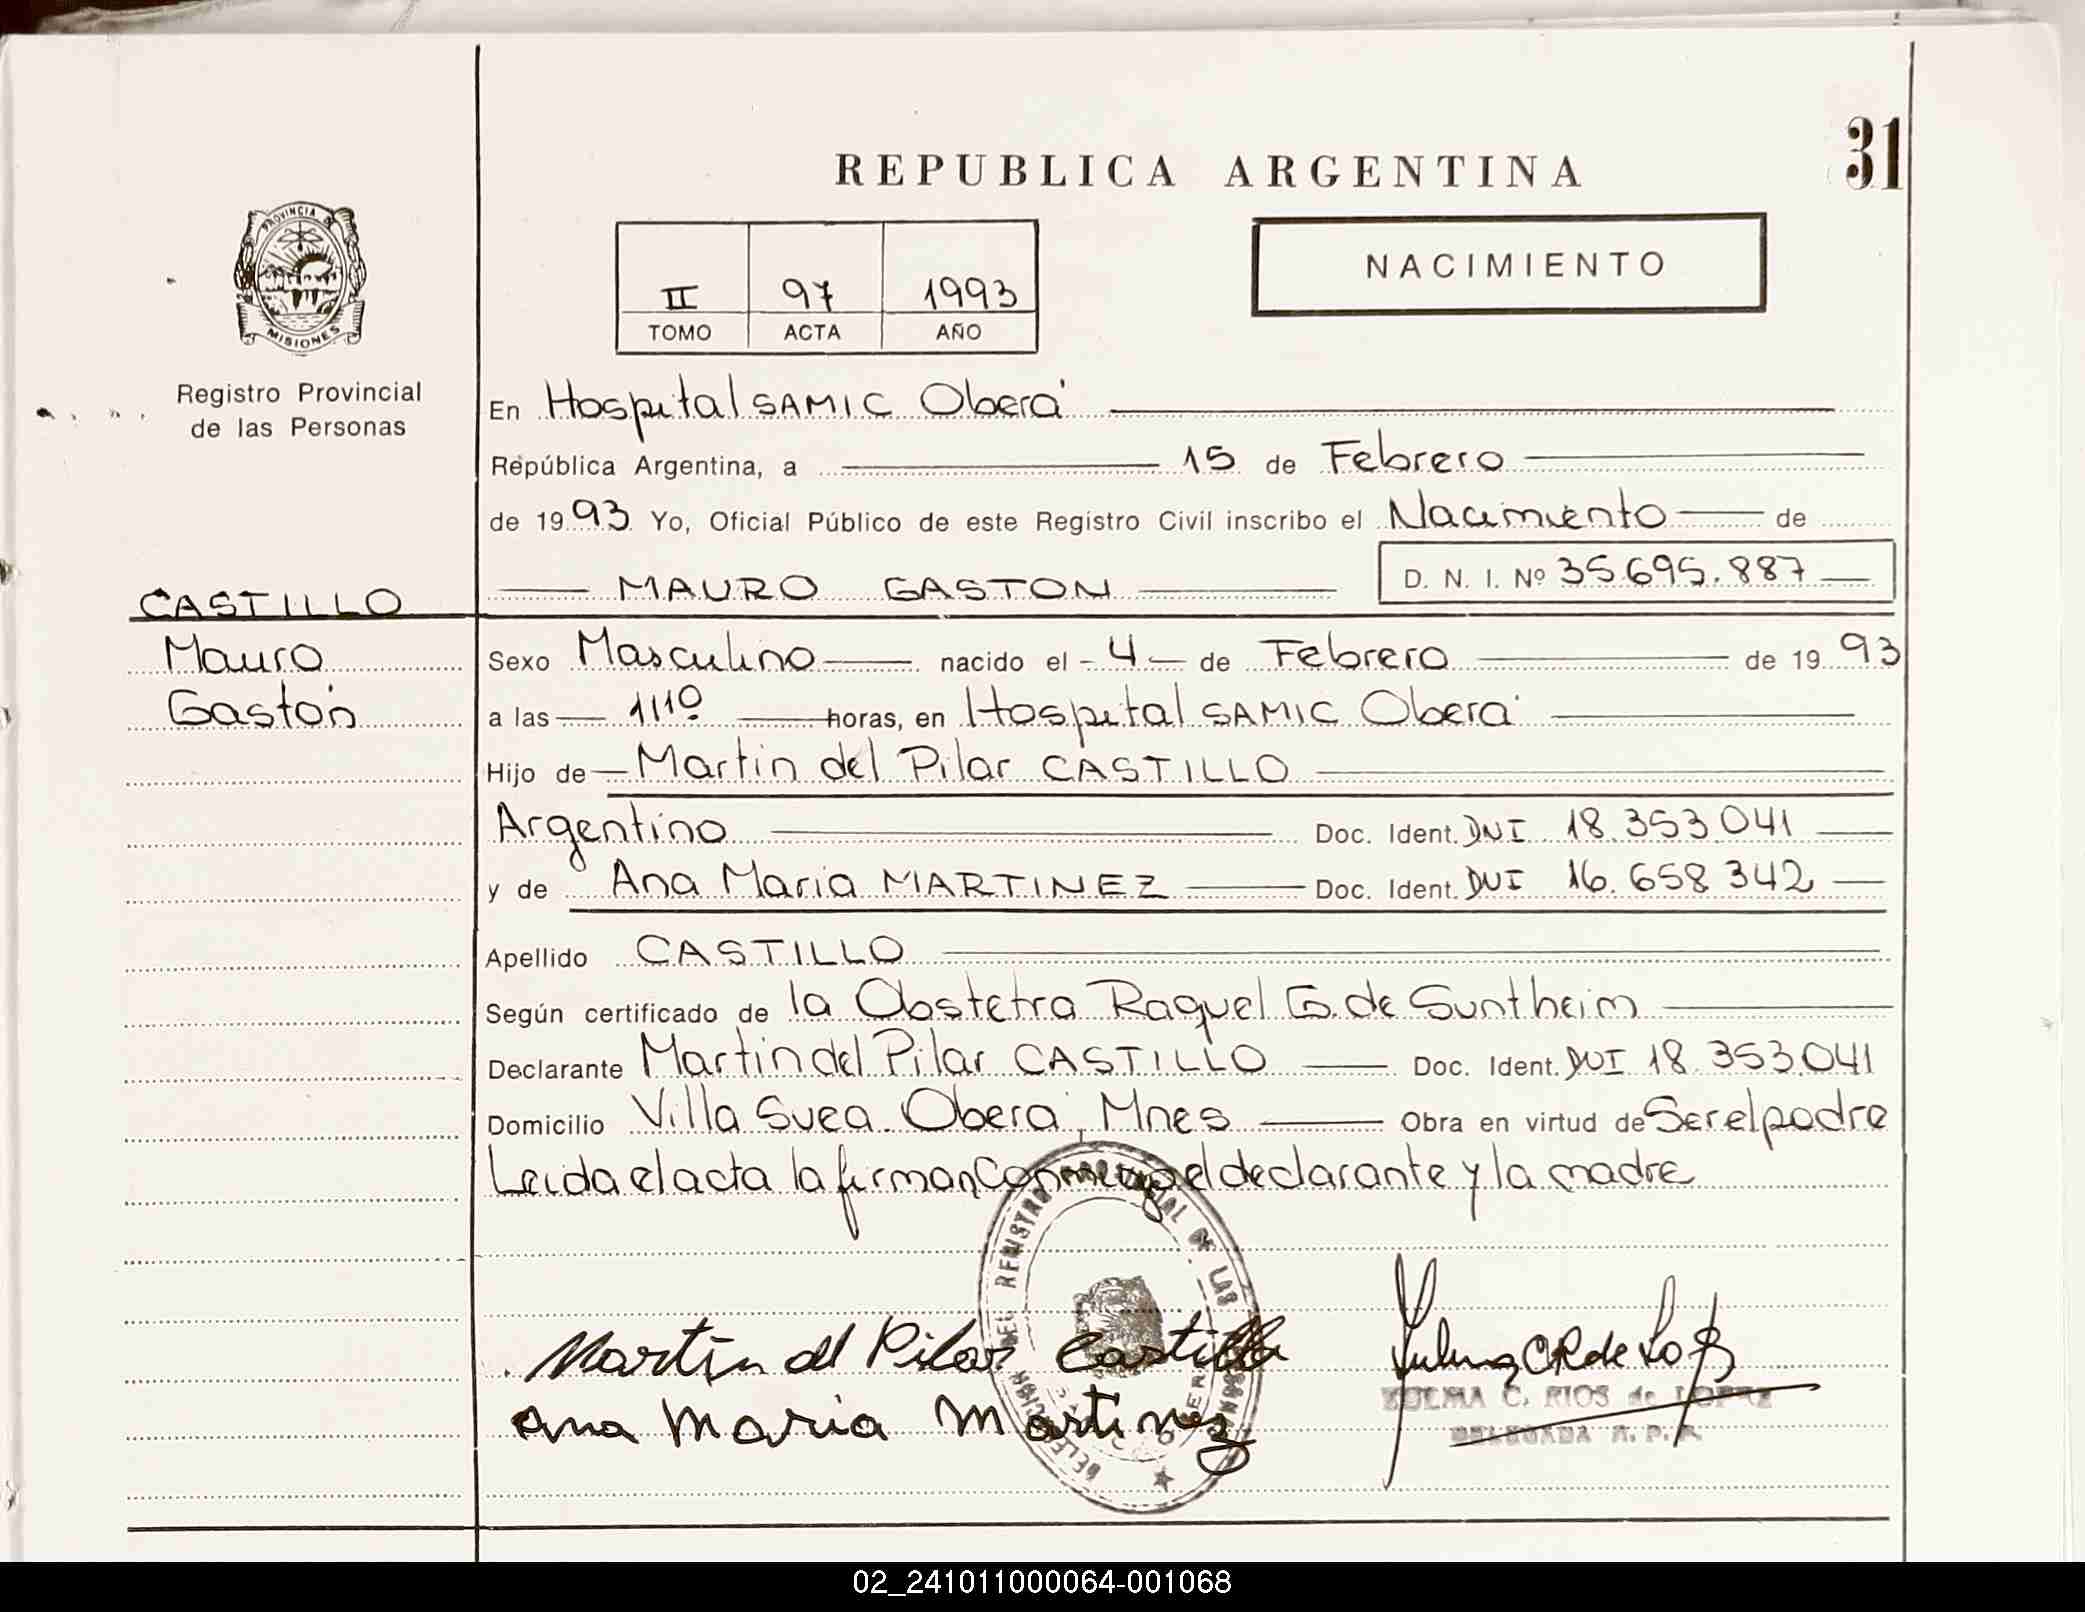 31
REPUBLICA ARGENTINA
PROVINCIA DE
MISIONES
Registro Provincial
de las Personas
II 97 1993
TOMO ACTA AÑO
NACIMIENTO
En Hospital SAMIC Oberá
República Argentina, a 15 de Febrero
de 1993 Yo, Oficial Público de este Registro Civil inscribo el Nacimiento de
MAURO GASTON D. N. I. Nº 35.695.887
CASTILLO
Mauro
Gastón
Sexo Masculino nacido el 4 de Febrero de 1993
a las 11 10 horas, en Hospital SAMIC Oberá
Hijo de Martin del Pilar CASTILLO
Argentino Doc. Ident. DNI 18.353.041
y de Ana Maria MARTINEZ Doc. Ident. DNI 16.658.342
Apellido CASTILLO
Según certificado de la Obstetra Raquel G. de Suntheim
Declarante Martin del Pilar CASTILLO Doc. Ident. DNI 18.353.041
Domicilio Villa Svea. Oberá, Mnes Obra en virtud de Ser el padre
Leida el acta la firman Conmigo el declarante y la madre
DELEGACION DEL REGISTRO PROVINCIAL DE LAS PERSONAS
Martín del Pilar Castillo
Ana Maria Martinez
ZULMA C. RIOS de LOPEZ
DELEGADA R. P. P.
02_241011000064-001068